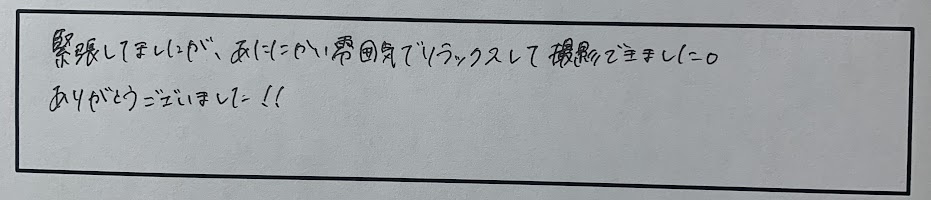 緊張してましたが、あたたかい雰囲気でリラックスして撮影できました。
ありがとうございました!!